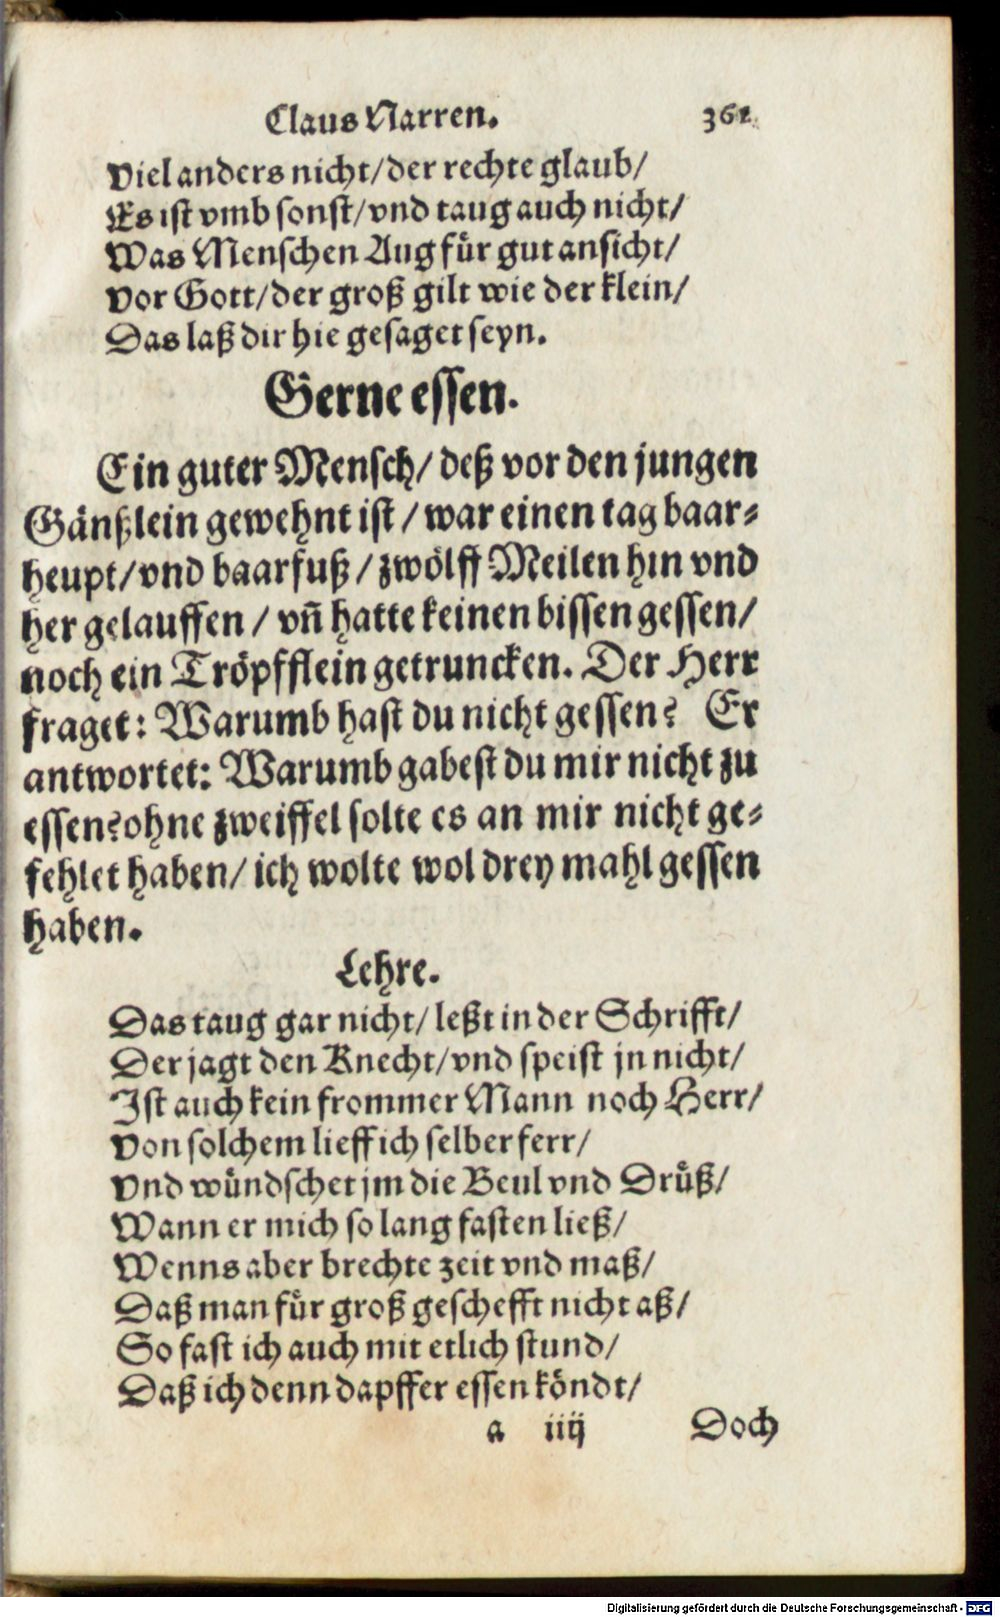 Claus Narren. 361
Viel anders nicht/der rechte glaub/
Es ist vmb sonst/vnd taug auch nicht/
Was Menschen Aug für gut ansicht/
Vor Gott/der groß gilt wie der klein/
Das laß dir hie gesaget seyn.
Gerne essen.
Ein guter Mensch/ deß vor den jungen
Gänßlein gewehnt ist / war einen tag baar-
heupt/vnd baarfuß / zwölff Meilen hin vnd
her gelauffen / vñ hatte keinen bissen gessen/
noch ein Tröpfflein getruncken. Der Herr
fraget: Warumb hast du nicht gessen? Er
antwortet: Warumb gabest du mir nicht zu
essen?ohne zweiffel solte es an mir nicht ge-
fehlet haben/ ich wolte wol drey mahl gessen
haben.
Lehre.
Das taug gar nicht/ leßt in der Schrifft/
Der jagt den Knecht/vnd speist jn nicht/
Ist auch kein frommer Mann noch Herr/
Von solchem lieff ich selber ferr/
Vnd wündschet jm die Beul vnd Drüß/
Wann er mich so lang fasten ließ/
Wenns aber brechte zeit vnd maß/
Daß man für groß gescheft nicht aß/
So fast ich auch mit etlich stund/
Daß ich denn dapffer essen köndt/
a iiij Doch
Digitalisierung gefördert durch die Deutsche Forschungsgemeinschaft - DFG